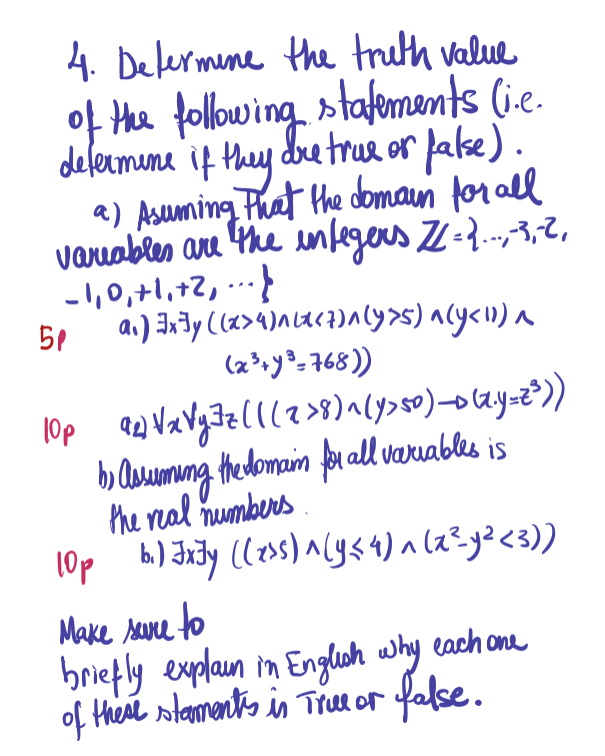 4. Determine the truth value
of the following statements (i.e.
determine if they are true or false).
a) Asuming that the domain for all
variables are the integers ℤ={...,-3,-2,
-1,0,+1,+2, ...}
5p a₁) ∃x∃y ((x>4)∧(x<7)∧(y>5) ∧(y<11) ∧
(x³+y³=768))
10p a₂) ∀x∀y∃z(((x>8)∧(y>50)→(x.y=z³))
b) Assuming the domain for all variables is
the real numbers.
10p b₁) ∃x∃y ((x>5)∧(y≤4) ∧ (x²-y²<3))
Make sure to
briefly explain in English why each one
of these staments is True or false.